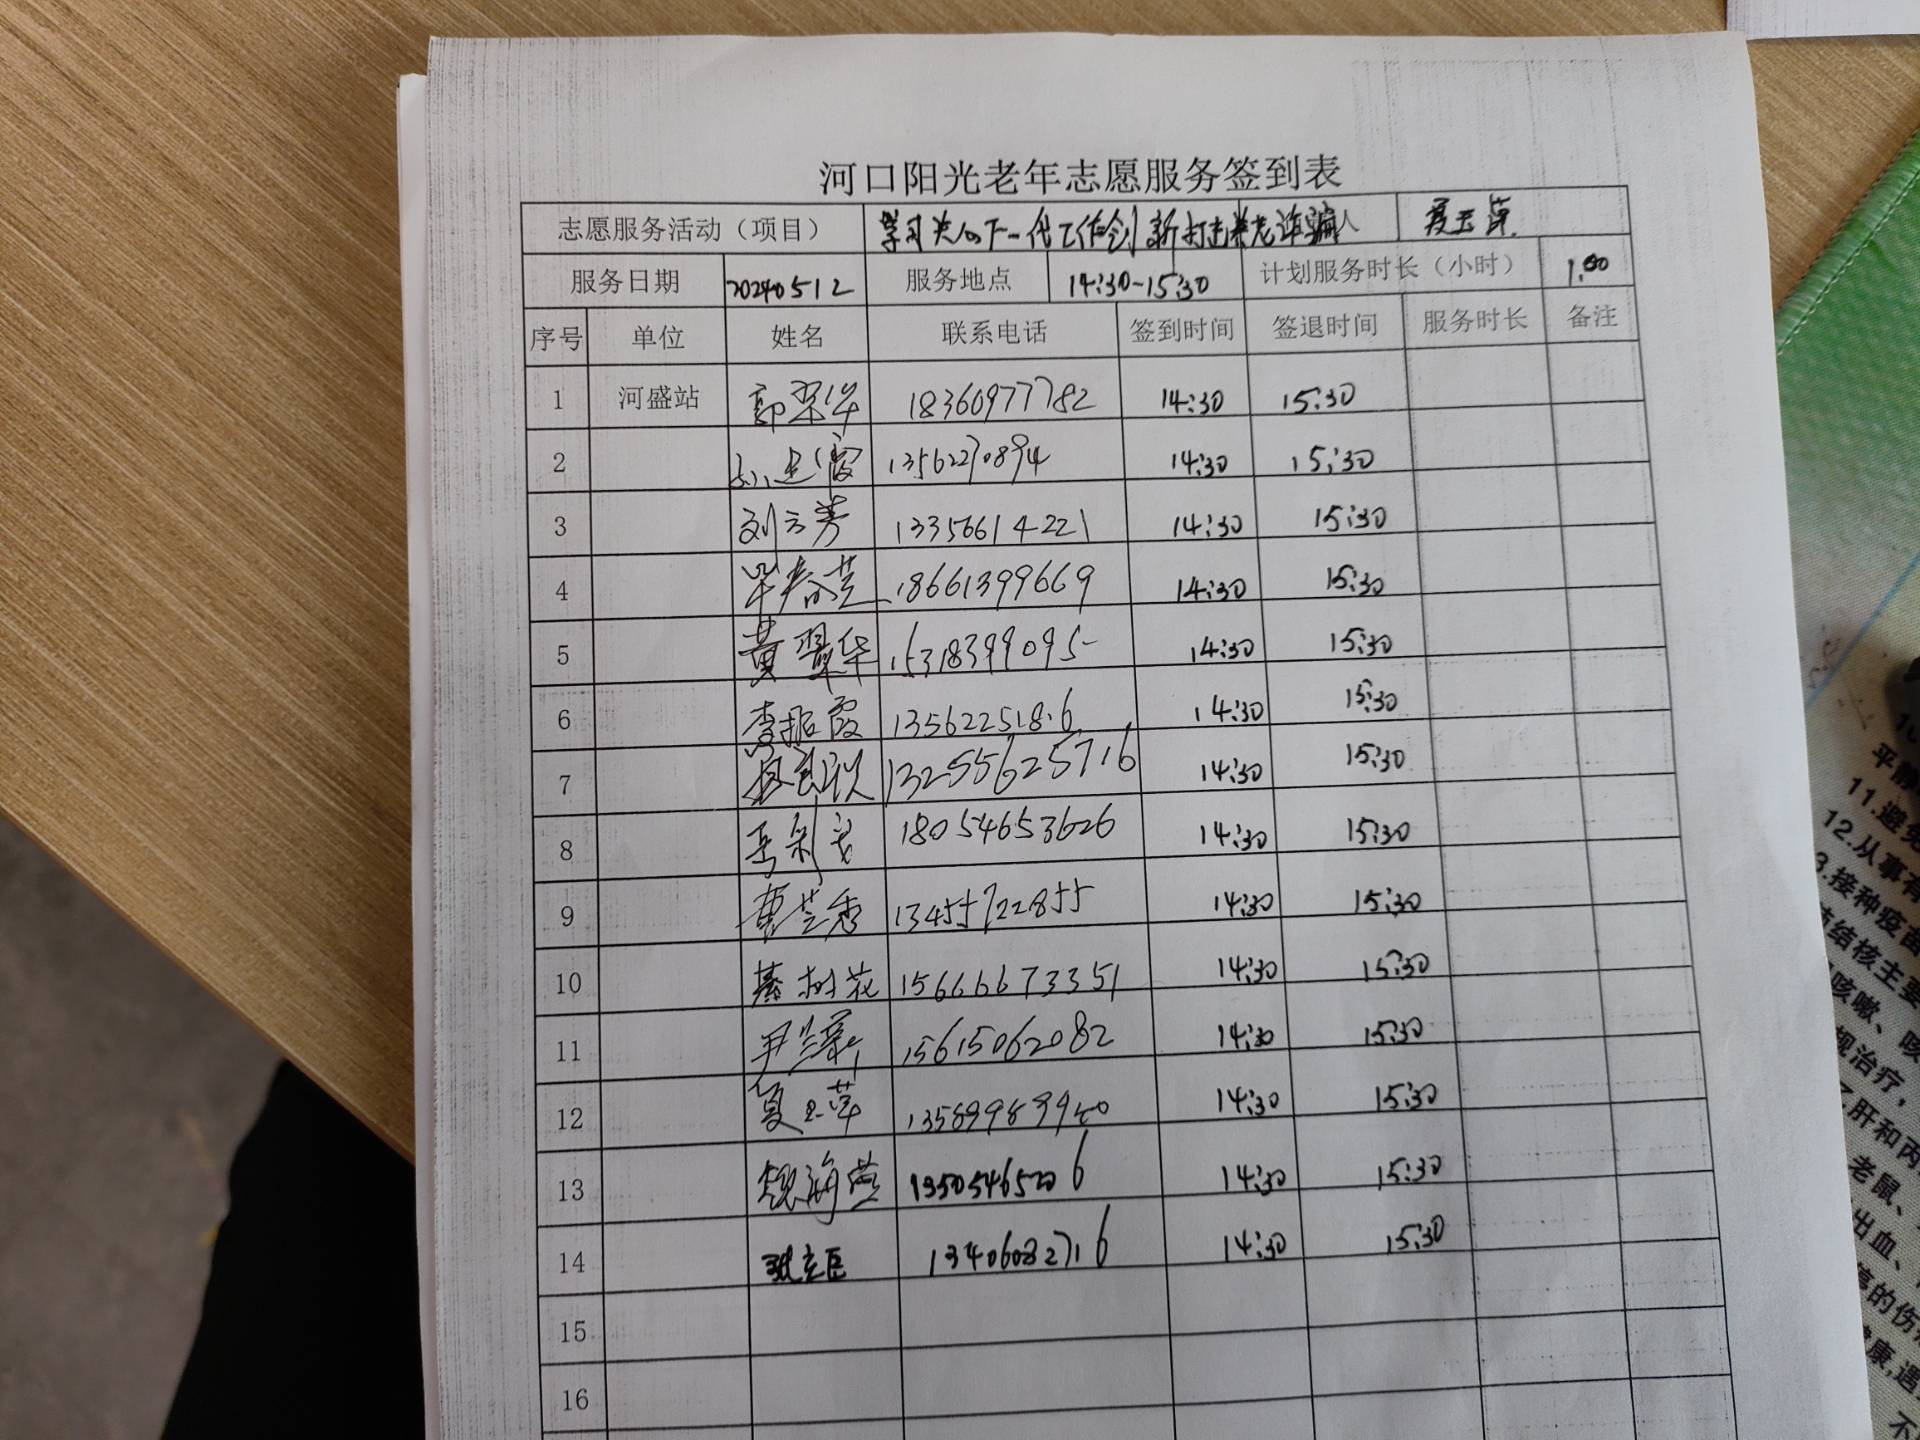 河口阳光老年志愿服务签到表
志愿服务活动（项目） 学习关心下一代工作创新打击养老诈骗人 夏玉萍
服务日期 20240512 服务地点 14:30-15:30 计划服务时长（小时） 1.00
序号 单位 姓名 联系电话 签到时间 签退时间 服务时长 备注
1 河盛站 郭翠华 18360977782 14:30 15:30
2 13562270894 14:30 15:30
3 刘云芳 13356614221 14:30 15:30
4 毕春芝 18661399669 14:30 15:30
5 黄翠华 15318399095 14:30 15:30
6 李振霞 14:30 15:30
7 13255625716 14:30 15:30
8 18054653626 14:30 15:30
9 曹芝秀 13455722855 14:30 15:30
10 綦树花 15666673351 14:30 15:30
11 尹兰菊 15615062082 14:30 15:30
12 夏玉萍 14:30 15:30
13 魏海燕 14:30 15:30
14 13406082716 14:30 15:30
15
16
平静
11.避免
12.从事有
3.接种疫苗
结核主要
咳嗽、咳
规治疗，
肝和丙
老鼠、
出血、
的伤
康，遇
不